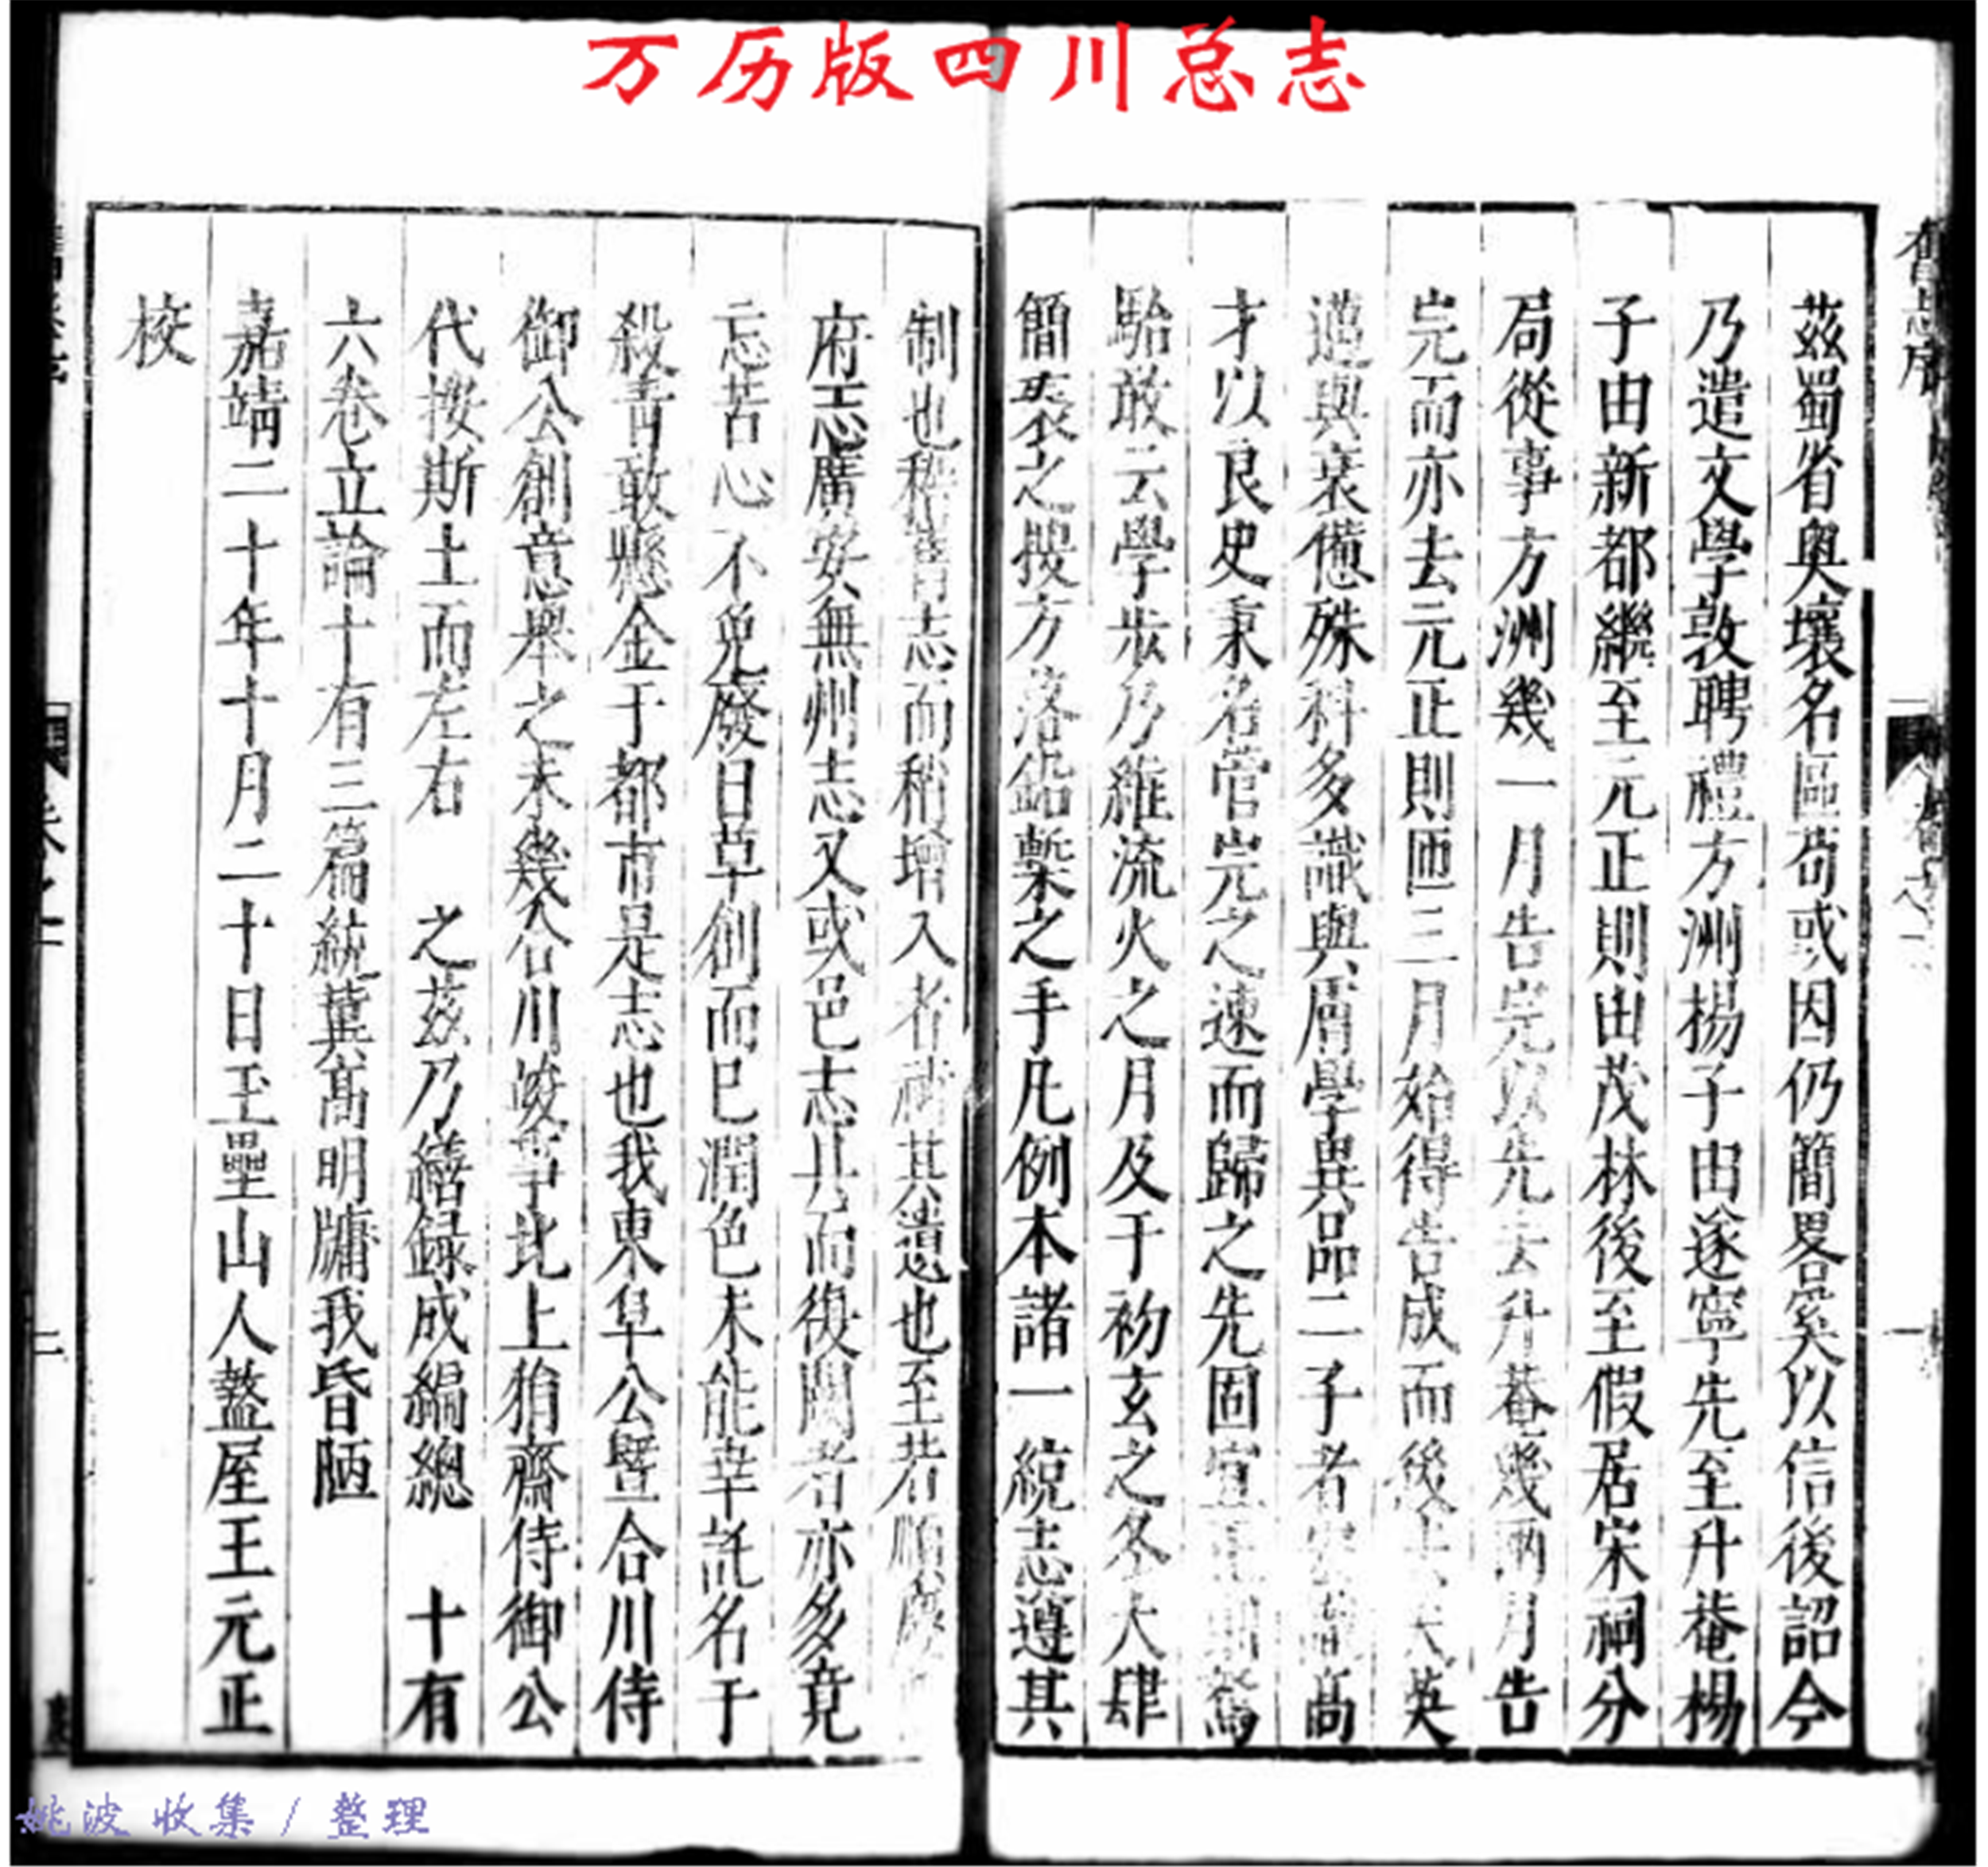 万历版四川总志
茲蜀省奥壤名區苟或因仍簡畧奚以信後詔今
乃遣文學敦聘禮方洲楊子由遂寧先至升菴楊
子由新都繼至元正則由茂林後至假居宋祠分
局從事方洲幾一月告完以先去升菴幾兩月告
完而亦去元正則匝三月始得告成而後去夫英
邁與衰憊殊科多識與膚學異品二子者高
才以良史秉名管完之速而歸之先固宜駑
駘敢云學步乃維流火之月及于初玄之冬大肆
簡袠之搜方落鉛槧之手凡例本諸一統志遵其
制也稱舊志而稍增入者補其遺也至若順慶
府志廣安無州志又或邑志具而復闕者亦多竟
忘苦心不免廢日草創而已潤色未能幸託名于
殺青敢懸金于都市是志也我東阜公暨合川侍
御公創意舉之未幾合川竣事北上狷齋侍御公
代按斯土而左右 之茲乃繕録成編總 十有
六卷立論十有三篇統冀高明牖我昏陋
嘉靖二十年十月二十日玉壘山人盩厔王元正
校
舊志序
一
二
姚波 收集 / 整理